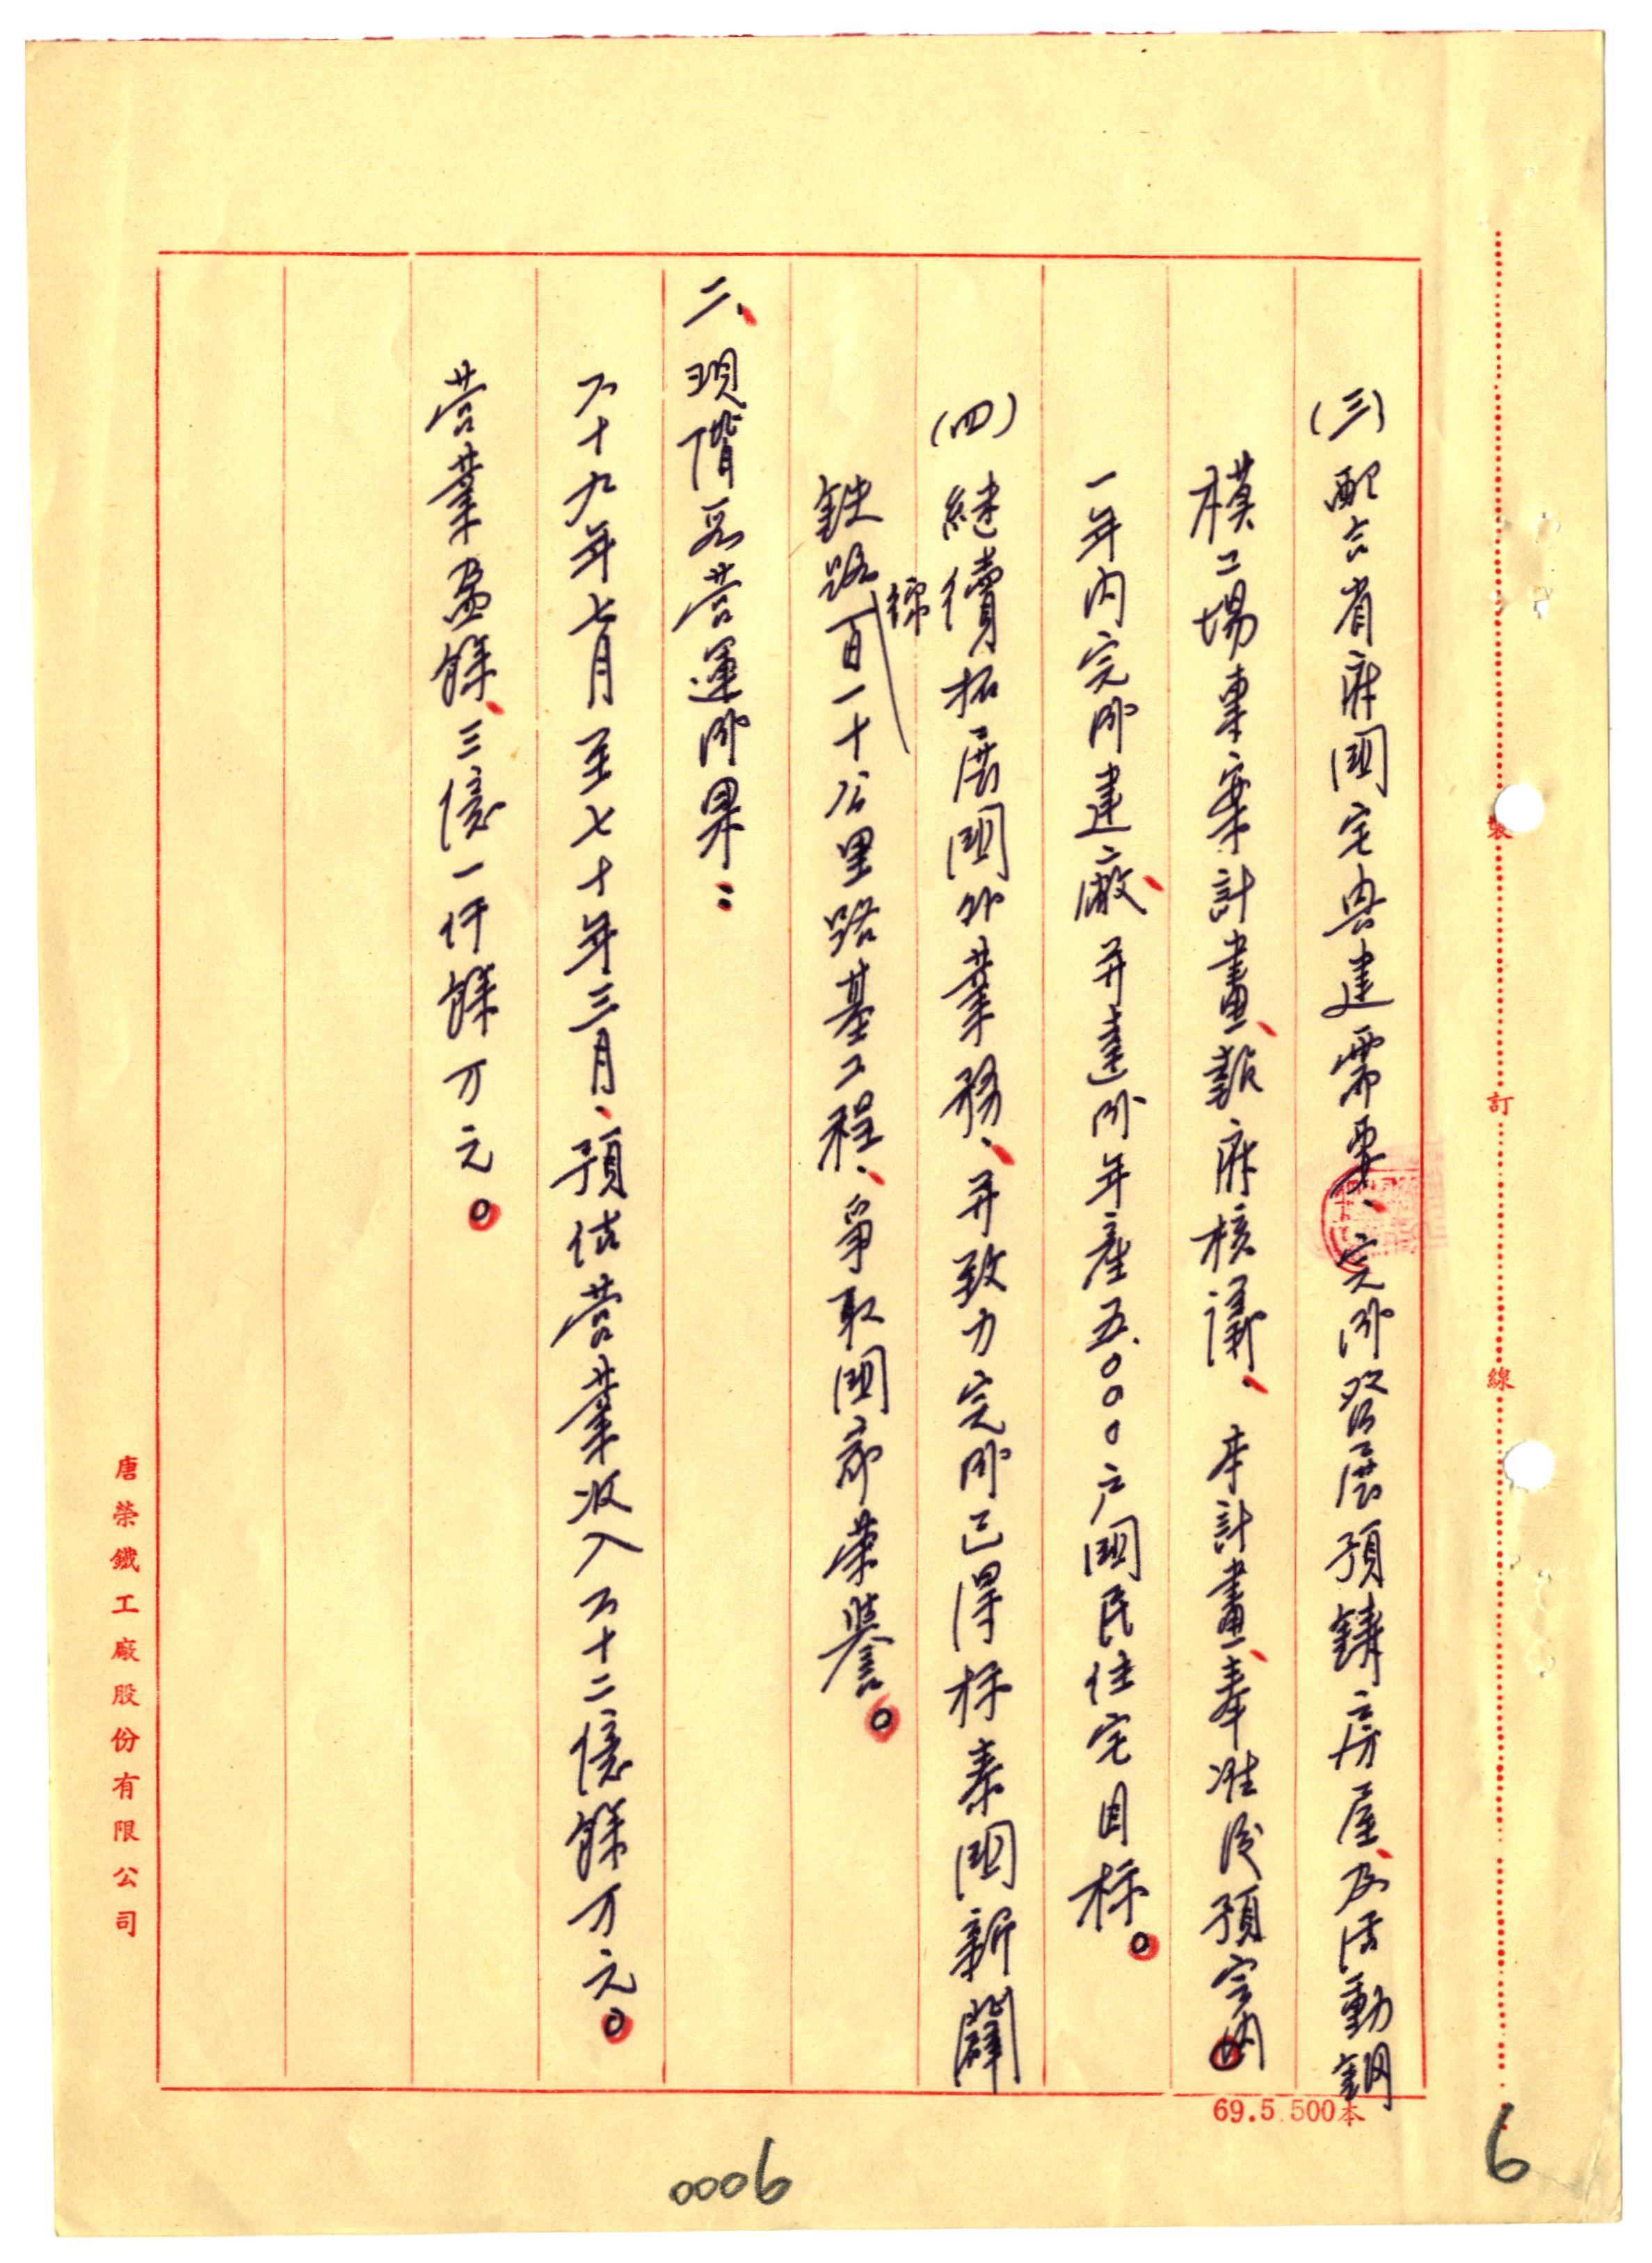 (三)配合省府國宅興建需要、完成發展預鑄房屋、及活動鋼
模工場專案計畫、報府核議、本計畫、奉准後預定內
一年內完成建廠、并達成年產五、○○○戶國民住宅目標。
(四)繼續拓展國外業務、并致力完成已得标泰國新闢
鉄路百一十公里路基工程、爭取國家荣譽。
二、現階段營運成果：
六十九年七月至七十年三月、預估营業收入六十二億餘万元。
营業盈餘、三億一仟餘万元。
裝
訂
線
唐榮鐵工廠股份有限公司
69.5.500本
0006
6